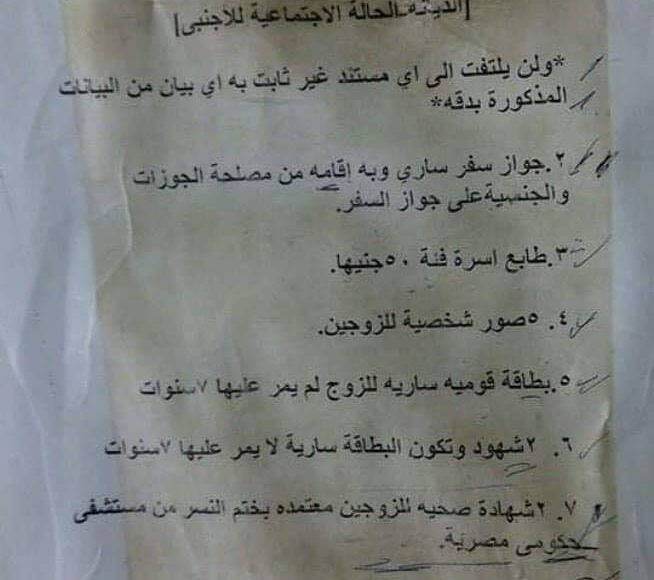 [الديانة_الحالة الاجتماعية للأجنبى]
*ولن يلتفت الى اي مستند غير ثابت به اي بيان من البيانات
المذكورة بدقه*
٢.جواز سفر ساري وبه إقامه من مصلحة الجوزات
والجنسيةعلى جواز السفر.
٣.طابع اسرة فئة ٥٠جنيها.
٤. ٥صور شخصية للزوجين.
٥.بطاقة قوميه ساريه للزوج لم يمر عليها ٧سنوات
٦. ٢شهود وتكون البطاقة سارية لا يمر عليها ٧سنوات
٧. ٢شهادة صحيه للزوجين معتمده بختم النسر من مستشفى
حكومى مصرية.